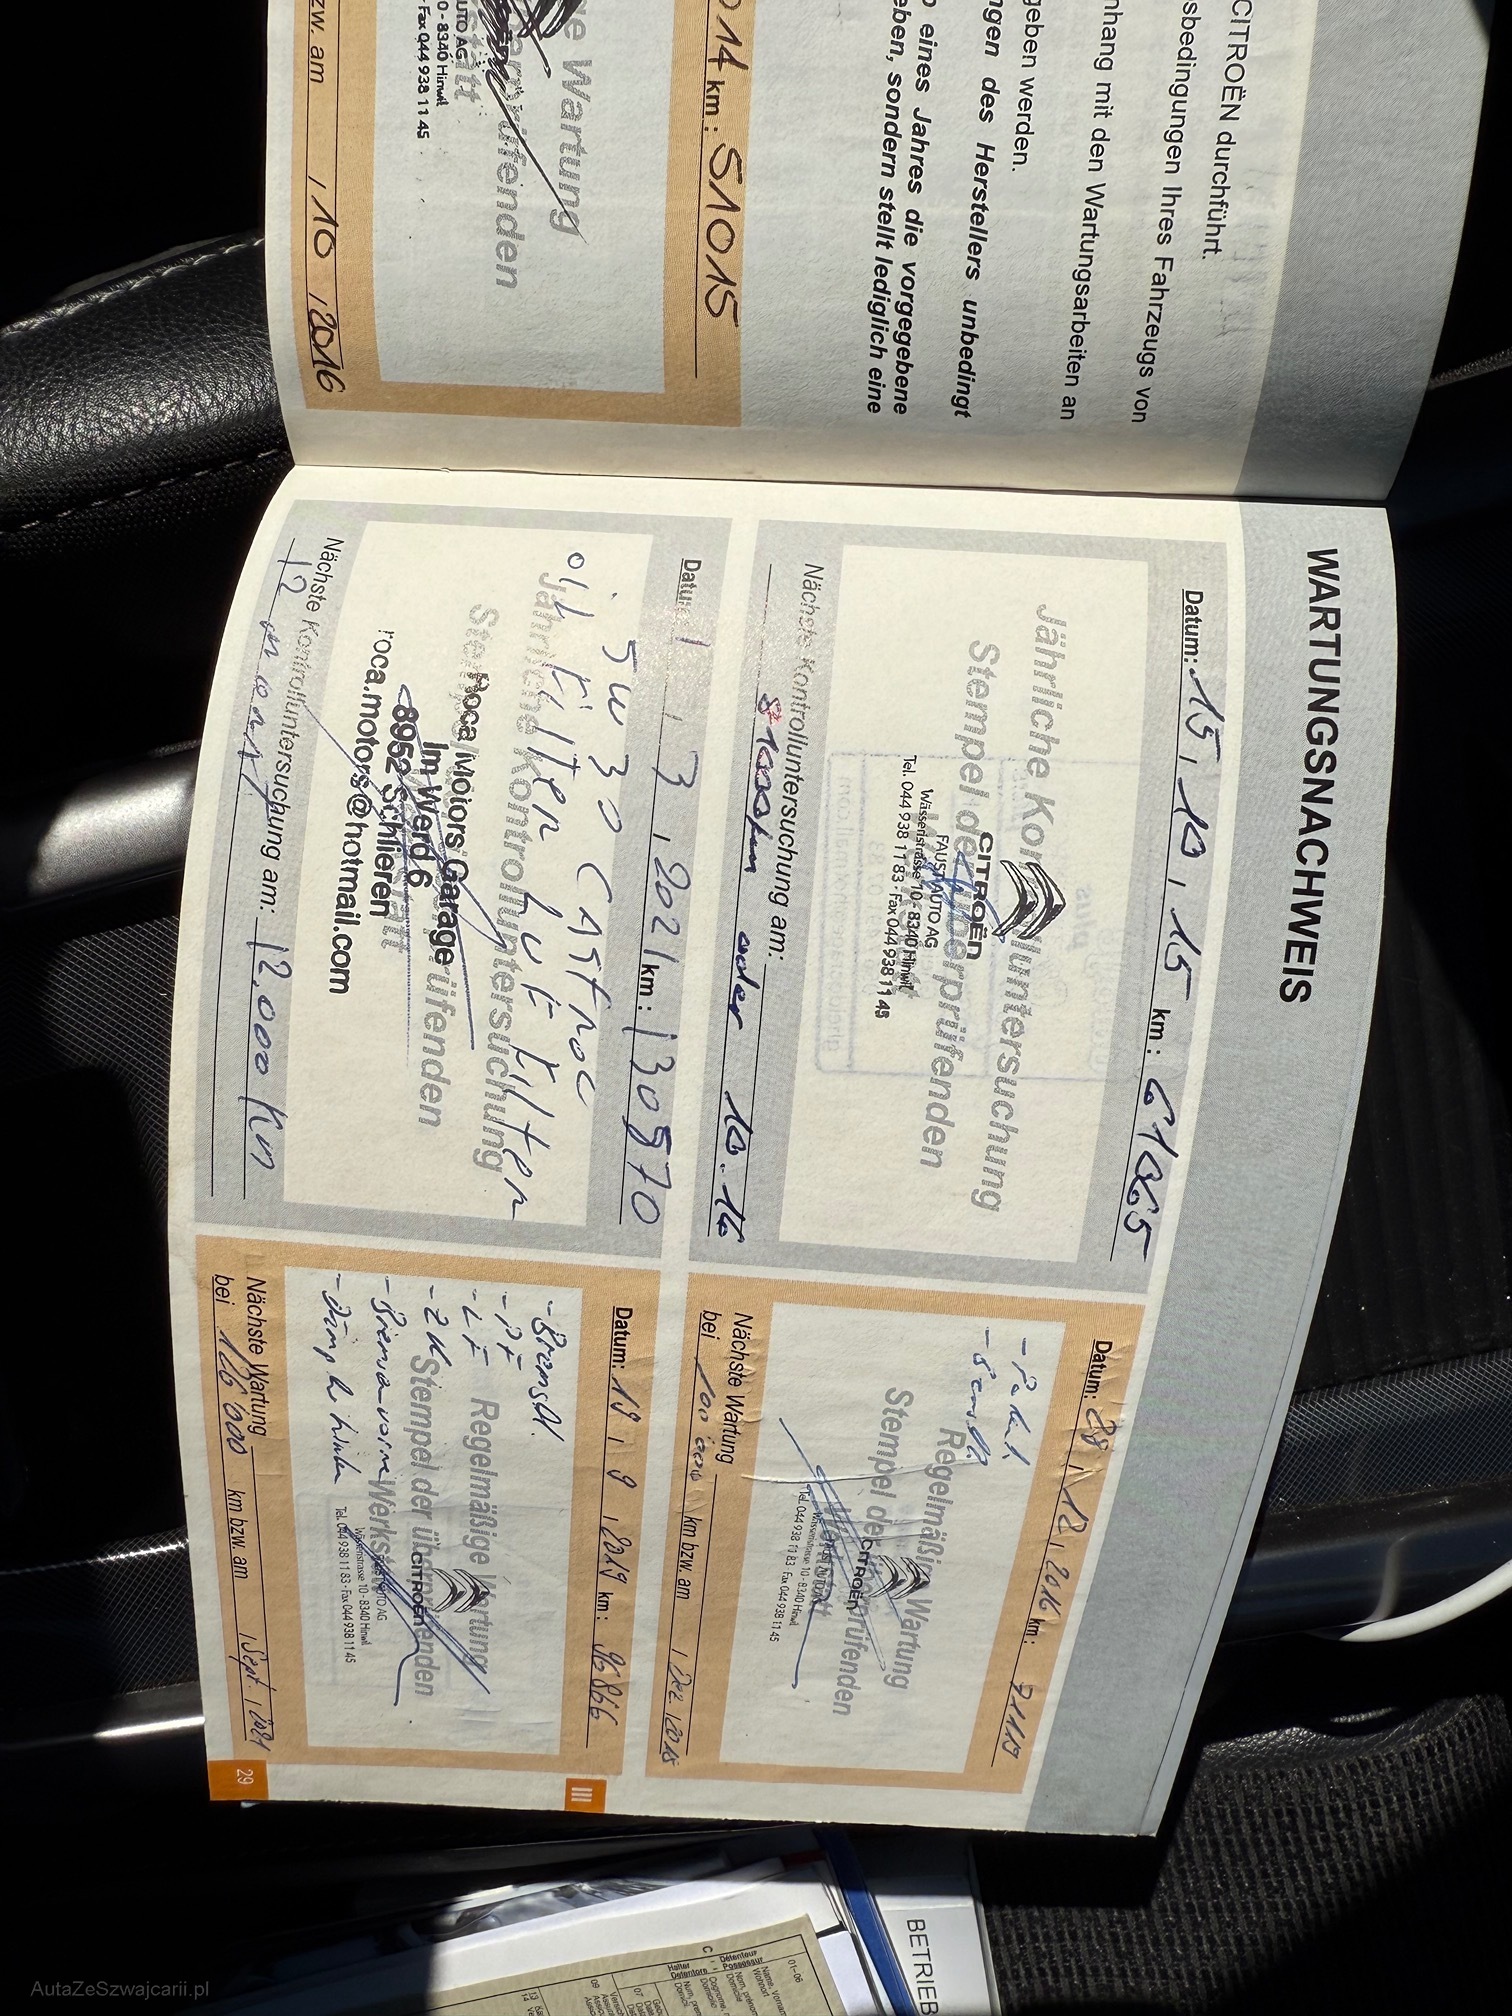 CITROËN durchführt.
sbedingungen Ihres Fahrzeugs von
nhang mit den Wartungsarbeiten an
geben werden.
ngen des Herstellers unbedingt
eines Jahres die vorgegebene
eben, sondern stellt lediglich eine
014 km: 51015
e Wartung
erprüfenden
UTO AG
0 - 8340 Hinwil
Fax 044 938 11 45
zw. am , 10 , 2016
WARTUNGSNACHWEIS
Datum: 15 , 10 , 15 km: 61065
Jährliche Kontrolluntersuchung
Stempel der überprüfenden
Werkstatt
CITROËN
FAUST AUTO AG
Wässeristrasse 10 - 8340 Hinwil
Tel. 044 938 11 83 · Fax 044 938 11 45
Nächste Kontrolluntersuchung am:
oder 10.16
Datum: 28 , 12 , 2016 km:
Regelmäßige Wartung
Stempel der überprüfenden
Werkstatt
CITROËN
Wässeristrasse 10 - 8340 Hinwil
Tel. 044 938 11 83 · Fax 044 938 11 45
Nächste Wartung
bei 100'000 km bzw. am , Dez. , 2018
Datum 1 , 3 , 2021 km: 130570
5W30 CASTROL
oil Filter Luft Filter
Jährliche Kontrolluntersuchung
Stempel der überprüfenden
Werkstatt
Roca Motors Garage
Im Werd 6
8952 Schlieren
roca.motors@hotmail.com
Nächste Kontrolluntersuchung am: 12.000 Km
12 monat
Datum: 19 , 9 , 2019 km: 96866
- Bremsfl.
- PF
- LF
- ZK
- Bremsen vorne
- hinten
Regelmäßige Wartung
Stempel der überprüfenden
Werkstatt
CITROËN
FAUST AUTO AG
Wässeristrasse 10 - 8340 Hinwil
Tel. 044 938 11 83 · Fax 044 938 11 45
Nächste Wartung
bei 126'000 km bzw. am , Sept. , 2021
III
29
BETRIEB
Détenteur
Possesseur
Halter
C
01-06
09
07
AutaZeSzwajcarii.pl